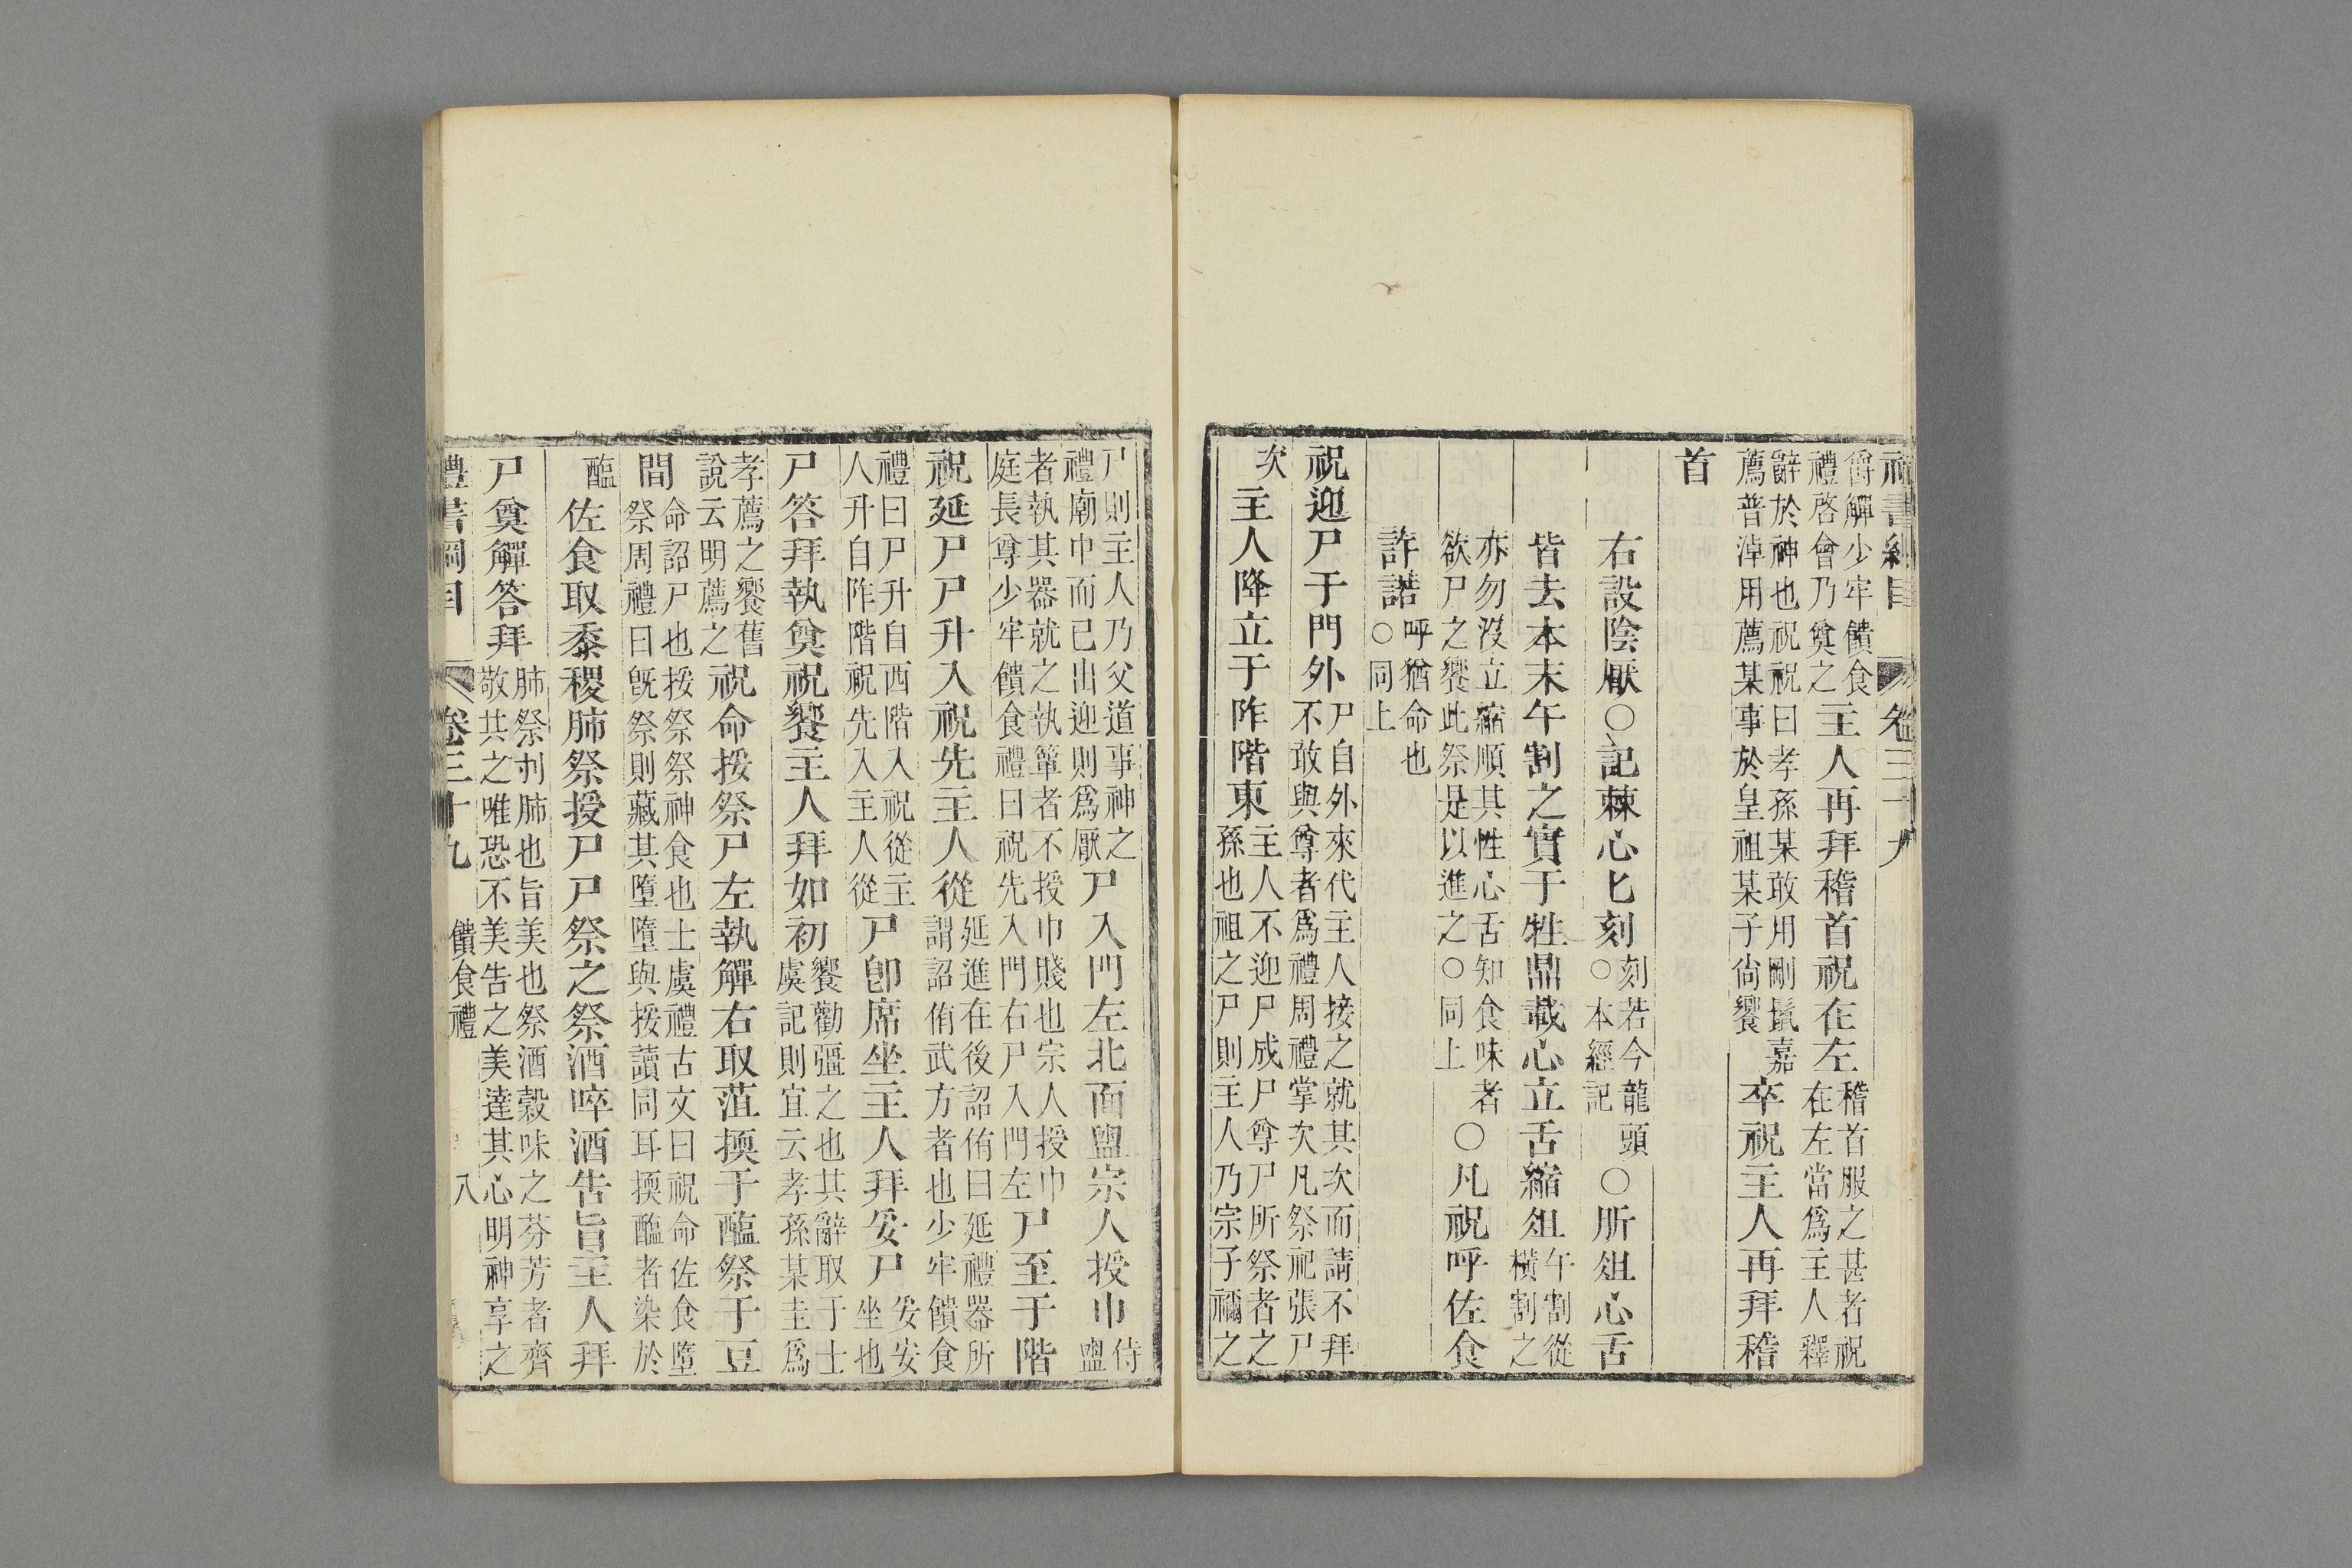 禮書綱目 卷三十九
爵觶少牢饋食
禮啓會乃奠之
主人再拜稽首祝在左
稽首服之甚者祝
在左當爲主人釋
辭於神也祝祝曰孝孫某敢用剛鬣嘉
薦普淖用薦某事於皇祖某子尙饗
卒祝主人再拜稽
首
右設陰厭○記棘心匕刻
刻若今龍頭
○本經記
○肵俎心舌
皆去本末午割之實于牲鼎載心立舌縮俎
午割從
橫割之
亦勿沒立縮順其性心舌知食味者
欲尸之饗此祭是以進之○同上
○凡祝呼佐食
許諾
呼猶命也
○同上
祝迎尸于門外
尸自外來代主人接之就其次而請不拜
不敢與尊者爲禮周禮掌次凡祭祀張尸
次
主人降立于阼階東
主人不迎尸成尸尊尸所祭者之
孫也祖之尸則主人乃宗子禰之
尸則主人乃父道事神之
禮廟中而已出迎則爲厭
尸入門左北面盥宗人授巾
侍
盥
者執其器就之執簞者不授巾賤也宗人授巾
庭長尊少牢饋食禮曰祝先入門右尸入門左
尸至于階
祝延尸尸升入祝先主人從
延進在後詔侑曰延禮器所
謂詔侑武方者也少牢饋食
禮曰尸升自西階入祝從主
人升自阼階祝先入主人從
尸卽席坐主人拜妥尸
妥安
坐也
尸答拜執奠祝饗主人拜如初
饗勸彊之也其辭取于士
虞記則宜云孝孫某圭爲
孝薦之饗舊
說云明薦之
祝命挼祭尸左執觶右取菹擩于醢祭于豆
間
命詔尸也挼祭祭神食也士虞禮古文曰祝命佐食墮
祭周禮曰旣祭則藏其墮墮與挼讀同耳擩醢者染於
醢
佐食取黍稷肺祭授尸尸祭之祭酒啐酒告旨主人拜
尸奠觶答拜
肺祭刌肺也旨美也祭酒穀味之芬芳者齊
敬共之唯恐不美告之美達其心明神享之
禮書綱目 卷三十九 饋食禮 八